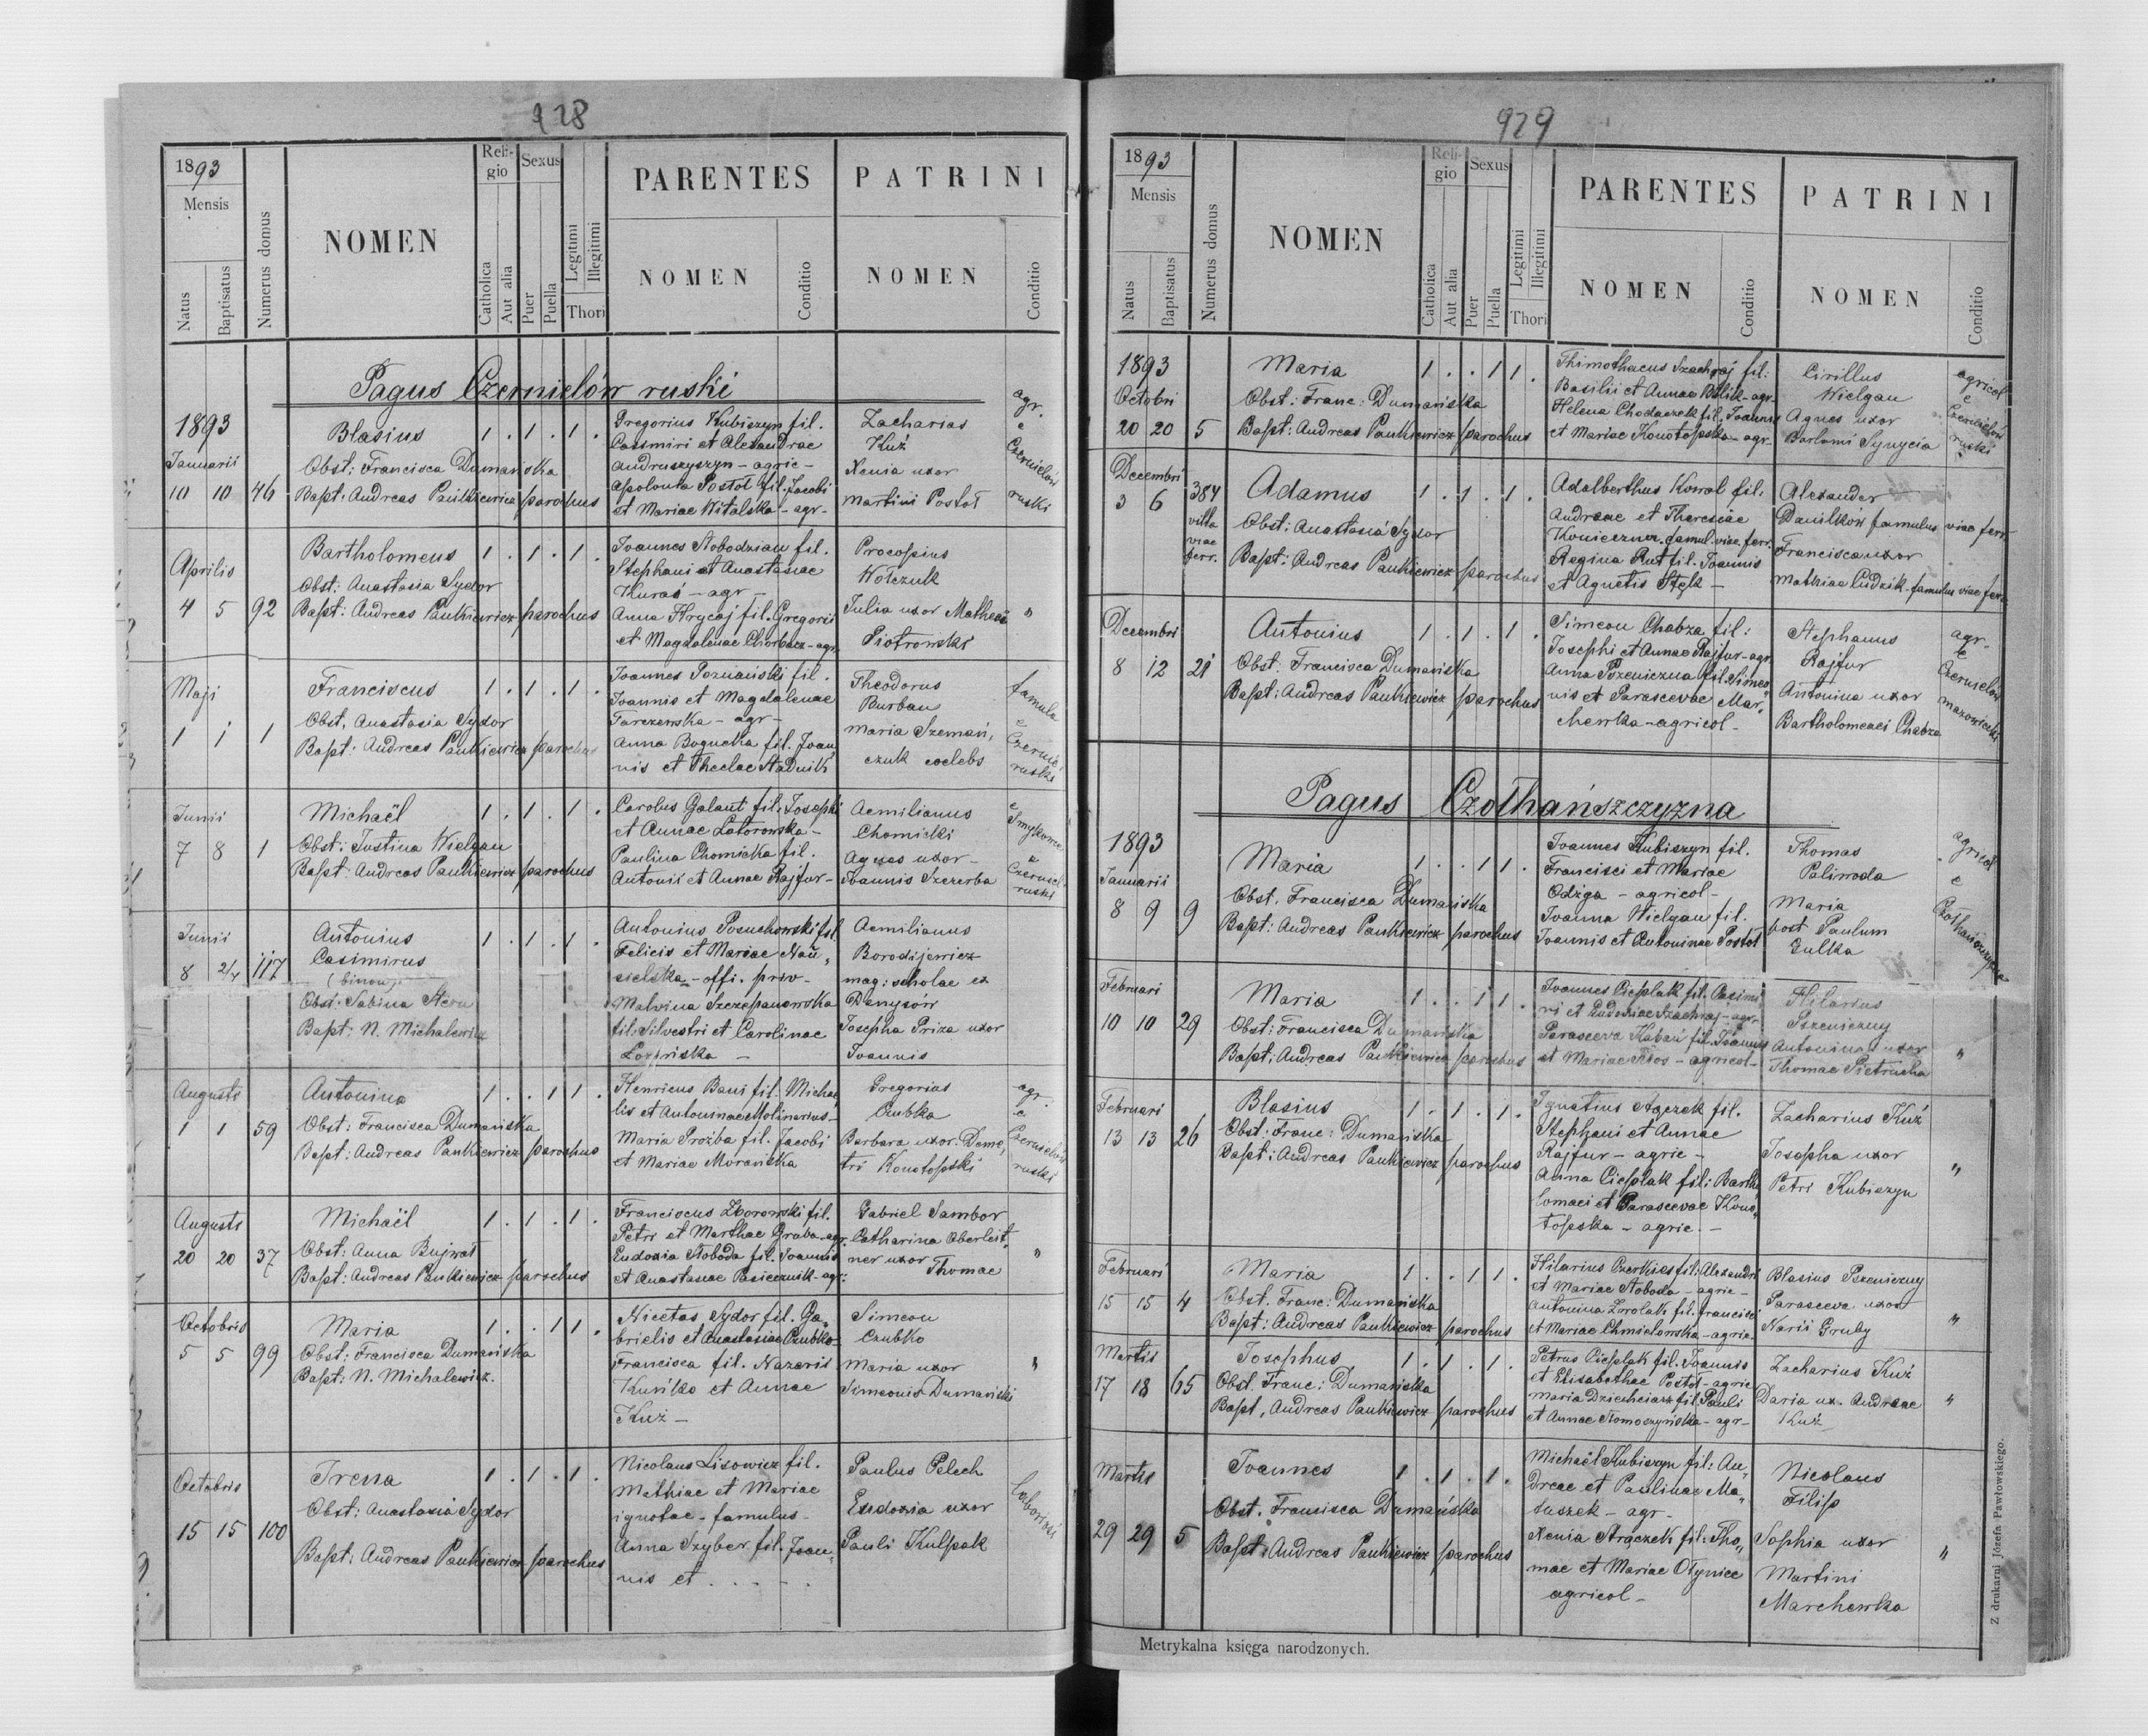 928
1893
Mensis
Natus
Baptisatus
Numerus domus
NOMEN
Reli-
gio
Catholica
Aut alia
Sexus
Puer
Puella
Legitimi
Illegitimi
Thori
PARENTES
NOMEN
Conditio
PATRINI
NOMEN
Conditio
Pagus Czernielów ruski
1893
Januarii
10 10 46
Blasius
Obst: Francisca Dumańska
Bapt: Andreas Pankiewicz parochus
1 . 1 . 1 .
Gregorius Kubiszyn fil.
Casimiri et Alexandrae
Andruszyszyn - agric -
Apolonia Postoł fil. Jacobi
et Mariae Witalska - agr -
Zacharias
Kuź
Xenia uxor
Martini Postoł
agr.
e
Czernielów
ruski
Aprilis
4 5 92
Bartholomeus
Obst: Anastasia Sydor
Bapt: Andreas Pankiewicz parochus
1 . 1 . 1 .
Joannes Słobodzian fil.
Stephani et Anastasiae
Kuraś - agr -
Anna Hrycaj fil. Gregorii
et Magdalenae Chorbacz - agr.
Procopius
Wołczuk
Julia uxor Mathei
Piotrowski
"
Maji
1 1 1
Franciscus
Obst. Anastasia Sydor
Bapt: Andreas Pankiewicz parochus
1 . 1 . 1 .
Joannes Poznański fil.
Joannis et Magdalenae
Tarczewska - agr -
Anna Bogucka fil. Joan„
nis et Theclae Stadnik
Theodorus
Burban
Maria Szemań„
czuk coelebs
famula
e
Czerniel
ruski
Junii
7 8 1
Michaël
Obst: Justina Wielgan
Bapt: Andreas Pankiewicz parochus
1 . 1 . 1 .
Carolus Galant fil. Josephi
et Annae Latorowska -
Paulina Chomicka fil.
Antonii et Annae Rajfur -
Aemilianus
Chomicki
Agnes uxor
Joannis Szczerba
e
Smykowce
e
Czerniel
ruski
Junii
8 2/7 117
Antonius
Casimirus
(binom)
Obst: Sabina Stern
Bapt: N. Michalewicz
1 . 1 . 1 .
Antonius Posuchowski fil.
Felicis et Mariae
- offi. priv -
Malvina Szczepanowska
fil: Silvestri et Carolinae
Łozińska -
Aemilianus
Borodijewicz
mag: scholae ex
Denysów
Josepha Priza uxor
Joannis
Augusti
1 1 59
Antonina
Obst: Francisca Dumańska
Bapt: Andreas Pankiewicz parochus
1 . . 1 1 .
Henricus Bauś fil. Micha„
lis et Antoninae Molinarius -
Maria Proźba fil. Jacobi
et Mariae Morawska
Gregorius
Czubka
Barbara uxor Deme„
tri Konotopski
agr.
e
Czernielów
ruski
Augusti
20 20 37
Michaël
Obst: Anna Bujwał
Bapt: Andreas Pankiewicz parochus
1 . 1 . 1 .
Franciscus Zborowski fil.
Petri et Marthae Gruba - agr.
Eudoxia Słoboda fil. Joannis
et Anastasiae Pasiecznik - agr:
Gabriel Sambor
Catharina Oberleit„
ner uxor Thomae
"
Octobris
5 5 99
Maria
Obst: Francisca Dumańska
Bapt: N. Michalewicz.
1 . . 1 1 .
Nicetas Sydor fil. Ga„
brielis et Anastasiae Czubko -
Francisca fil. Nazarii
Kuńko et Annae
Kuź -
Simeon
Czubko
Maria uxor
Simeonis Dumański
"
Octobris
15 15 100
Irena
Obst: Anastasia Sydor
Bapt: Andreas Pankiewicz parochus
1 . 1 . 1 .
Nicolaus Lisowicz fil.
Mathiae et Mariae
ignotae - famulus -
Anna Szyber fil. Joan„
nis et . . . - .
Paulus Pelech
Eudoxia uxor
Pauli Kulpak
laborioi
929
1893
Mensis
Natus
Baptisatus
Numerus domus
NOMEN
Reli-
gio
Catholica
Aut alia
Sexus
Puer
Puella
Legitimi
Illegitimi
Thori
PARENTES
NOMEN
Conditio
PATRINI
NOMEN
Conditio
1893
Octobri
20 20 5
Maria
Obst: Franc: Dumańska
Bapt: Andreas Pankiewicz parochus
1 . . 1 1 .
Thimotheus Szachraj fil:
Basilii et Annae Bilik - agr
Helena Chodaczek fil. Joannis
et Mariae Konotopska - agr -
Cirillus
Wielgan
Agnes uxor
Bartomi Synycia
agricol
e
Czernielów
ruski
Decembri
3 6 384
villa
viae
ferr.
Adamus
Obst: Anastasia Sydor
Bapt: Andreas Pankiewicz parochus
1 . 1 . 1 .
Adalbertus Kowal fil.
Andreae et Theresiae
Konieczna. famul. viae ferr.
Regina Rut fil. Joannis
et Agnetis Stęk -
Alexander
Daniłków famulus viae ferr.
Francisca uxor
Mathiae Cudzik - famulus viae ferr.
Decembri
8 12 21
Antonius
Obst. Francisca Dumańska
Bapt: Andreas Pankiewicz parochus
1 . 1 . 1 .
Simeon Chabza fil:
Josephi et Annae Rajfur - agr.
Anna Pszeniczna fil. Simeo„
nis et Parascevae Mar„
chewka - agricol -
Stephanus
Rajfur
Antonina uxor
Bartholomaei Chabza
agr.
e
Czernielów
mazowiecki
Pagus Czołhańszczyzna
1893
Januarii
8 9 9
Maria
Obst. Francisca Dumańska
Bapt: Andreas Pankiewicz parochus
1 . . 1 1 .
Joannes Kubiszyn fil.
Francisci et Mariae
Odźga - agricol -
Joanna Wielgan fil.
Joannis et Antoninae Postoł
Thomas
Paliwoda
Maria
post Paulum
Gulka
agricol
e
Czołhańszczyzna
Februari
10 10 29
Maria
Obst: Francisca Dumańska
Bapt: Andreas Pankiewicz parochus
1 . . 1 1 .
Joannes Cieplak fil. Casimi„
ri et Eudoxiae Szachraj - agr -
Parasceva Kaban fil. Joannis
et Mariae - agricol -
Hilarius
Pszeniczny
Antonina uxor
Thomae Pietrucha
"
Februari
13 13 26
Blasius
Obst: Franc: Dumańska
Bapt: Andreas Pankiewicz parochus
1 . 1 . 1 .
Ignatius fil.
Stephani et Annae
Rajfur - agric -
Anna Cieplak fil: Bartho„
lomaei et Parascevae Kono„
topska - agric. -
Zacharius Kuź
Josepha uxor
Petri Kubiszyn
"
Februari
15 15 4
Maria
Obst. Franc: Dumańska
Bapt: Andreas Pankiewicz parochus
1 . . 1 1 .
Hilarius Czerkies fil: Alexandri
et Mariae Słoboda - agric -
Antonina fil. Francisci
et Mariae Chmielowska - agric.
Blasius Pszeniczny
Parasceva uxor
Narii Gruby
"
Martis
17 18 65
Josephus
Obst. Franc: Dumańska
Bapt. Andreas Pankiewicz parochus
1 . 1 . 1 .
Petrus Cieplak fil. Joannis
et Elisabethae Postoł - agric
Maria Dziechciarz fil. Pauli
et Annae - agr -
Zacharius Kuź
Daria ux. Andreae
Kuź
"
Martis
29 29 5
Joannes
Obst. Francisca Dumańska
Bapt. Andreas Pankiewicz parochus
1 . 1 . 1 .
Michaël Kubiszyn fil: An„
dreae et Paulinae Ma„
tuszek - agr -
Xenia Strączek fil: Tho„
mae et Mariae Ołyniec
agricol -
Nicolaus
Filip
Sophia uxor
Martini
Marchewka
"
Metrykalna księga narodzonych.
Z drukarni Józefa Pawłowskiego.